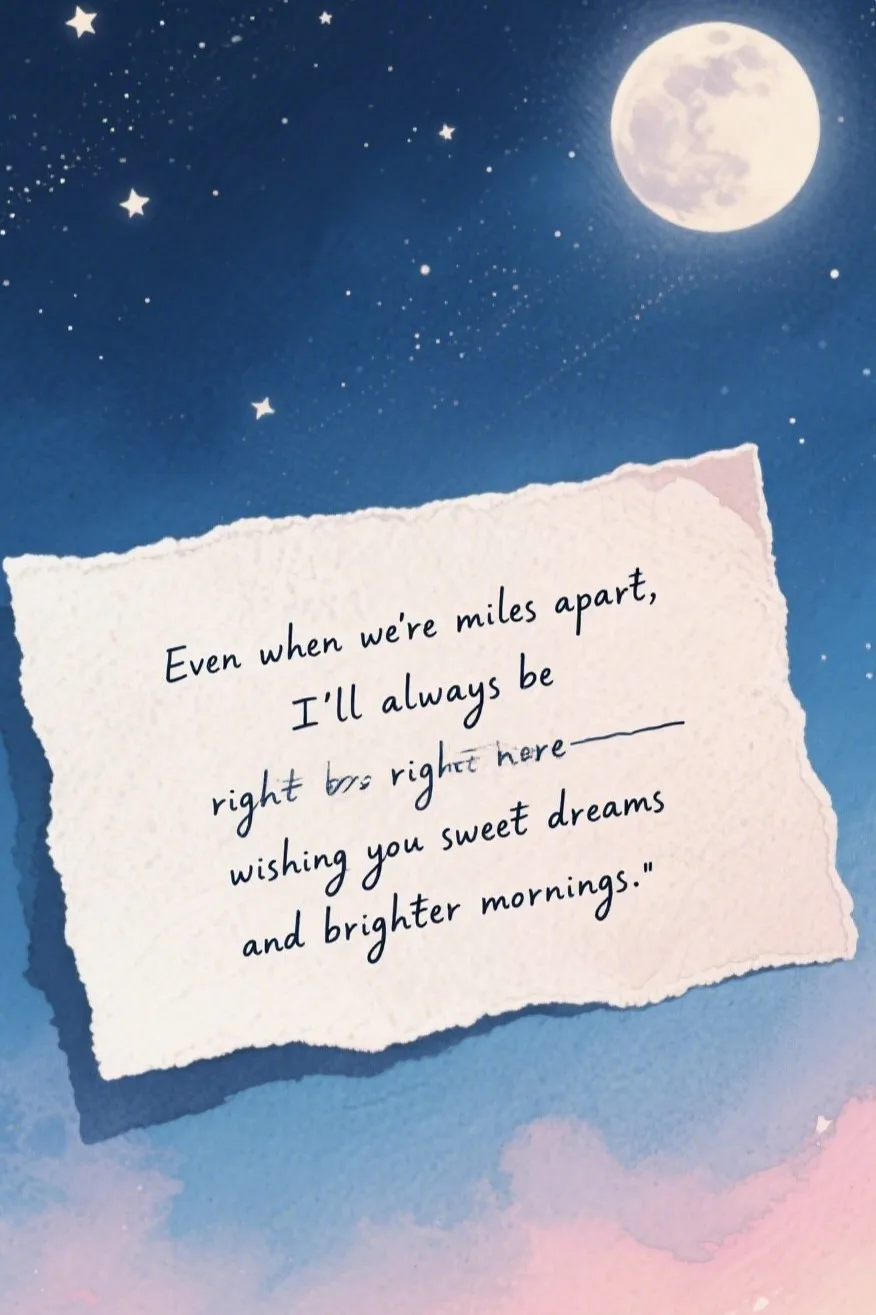 Even when we're miles apart,
I'll always be
right right here—
wishing you sweet dreams
and brighter mornings."